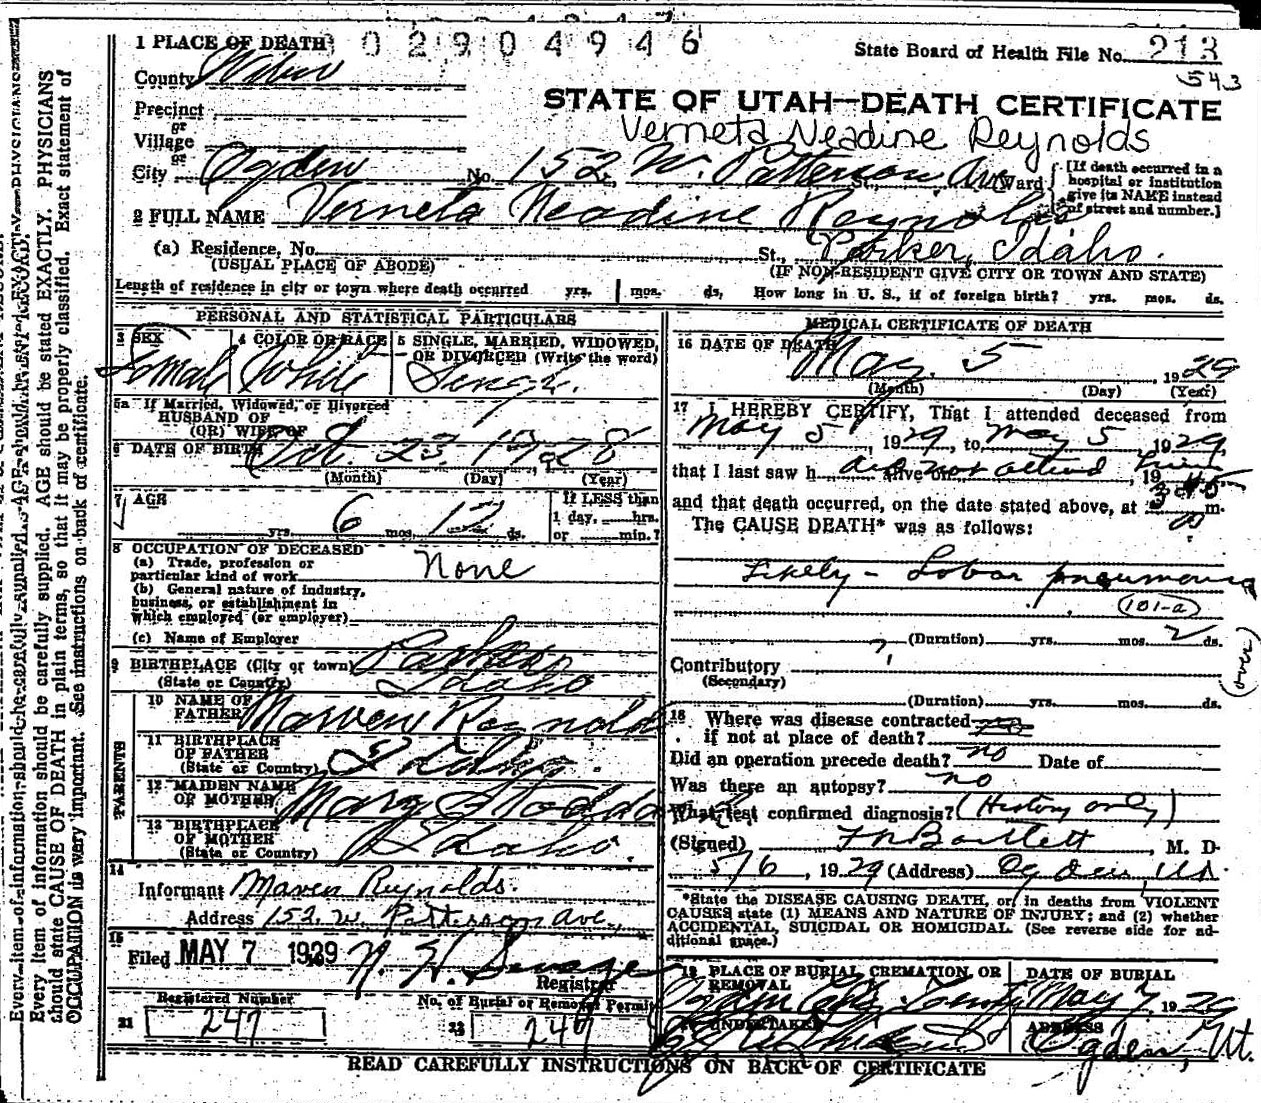 02904946
1 PLACE OF DEATH
State Board of Health File No. 213
543
County Weber
Precinct
or
Village
or
STATE OF UTAH—DEATH CERTIFICATE
Verneta Neadine Reynolds
City Ogden No. 152 W. Patterson Ave St., Ward
[If death occurred in a hospital or institution give its NAME instead of street and number.]
2 FULL NAME Verneta Neadine Reynolds
(a) Residence, No. St., Parker, Idaho.
(USUAL PLACE OF ABODE) (IF NON-RESIDENT GIVE CITY OR TOWN AND STATE)
Length of residence in city or town where death occurred yrs. mos. ds. How long in U. S., if of foreign birth? yrs. mos. ds.
PERSONAL AND STATISTICAL PARTICULARS
3 SEX 4 COLOR OR RACE 5 SINGLE, MARRIED, WIDOWED, OR DIVORCED (Write the word)
Female White Single
5a If Married, Widowed, or Divorced
HUSBAND OF
(OR) WIFE OF
6 DATE OF BIRTH Oct 23 1928
(Month) (Day) (Year)
7 AGE If LESS than
1 day, hrs.
yrs. 6 mos. 12 ds. or min.?
8 OCCUPATION OF DECEASED
(a) Trade, profession or
particular kind of work None
(b) General nature of industry,
business, or establishment in
which employed (or employer)
(c) Name of Employer
9 BIRTHPLACE (City or town) Parker
(State or Country) Idaho
PARENTS
10 NAME OF
FATHER Marven Reynolds
11 BIRTHPLACE
OF FATHER
(State or Country) Idaho.
12 MAIDEN NAME
OF MOTHER Mary Stoddard
13 BIRTHPLACE
OF MOTHER
(State or Country) Idaho.
14
Informant Maven Reynolds.
Address 152. W. Patterson Ave,
15
Filed MAY 7 1929
Registrar
Registered Number No. of Burial or Removal Permit
21 247 22 247
MEDICAL CERTIFICATE OF DEATH
16 DATE OF DEATH
May. 5, 1929
(Month) (Day) (Year)
17 I HEREBY CERTIFY, That I attended deceased from
May 5, 1929, to May 5, 1929,
that I last saw h did not attend alive on , 19
and that death occurred, on the date stated above, at 3:45 a m.
The CAUSE DEATH* was as follows:
Likely – Lobar pneumonia
101-a
(Duration) yrs. mos. 2 ds.
(over)
Contributory
(Secondary)
(Duration) yrs. mos. ds.
18 Where was disease contracted
if not at place of death?
Did an operation precede death? no Date of
Was there an autopsy? no
What test confirmed diagnosis? (History only)
(Signed) Bartlett, M. D.
5/6, 1929 (Address) Ogden, Ut.
*State the DISEASE CAUSING DEATH, or, in deaths from VIOLENT
CAUSES state (1) MEANS AND NATURE OF INJURY; and (2) whether
ACCIDENTAL, SUICIDAL OR HOMICIDAL. (See reverse side for ad-
ditional space.)
19 PLACE OF BURIAL, CREMATION, OR REMOVAL DATE OF BURIAL
Ogden City May 7, 1929
UNDERTAKER ADDRESS
Ogden, Ut.
READ CAREFULLY INSTRUCTIONS ON BACK OF CERTIFICATE
Every item of information should be carefully supplied. AGE should be stated EXACTLY. PHYSICIANS
should state CAUSE OF DEATH in plain terms, so that it may be properly classified. Exact statement of
OCCUPATION is very important. See instructions on back of certificate.